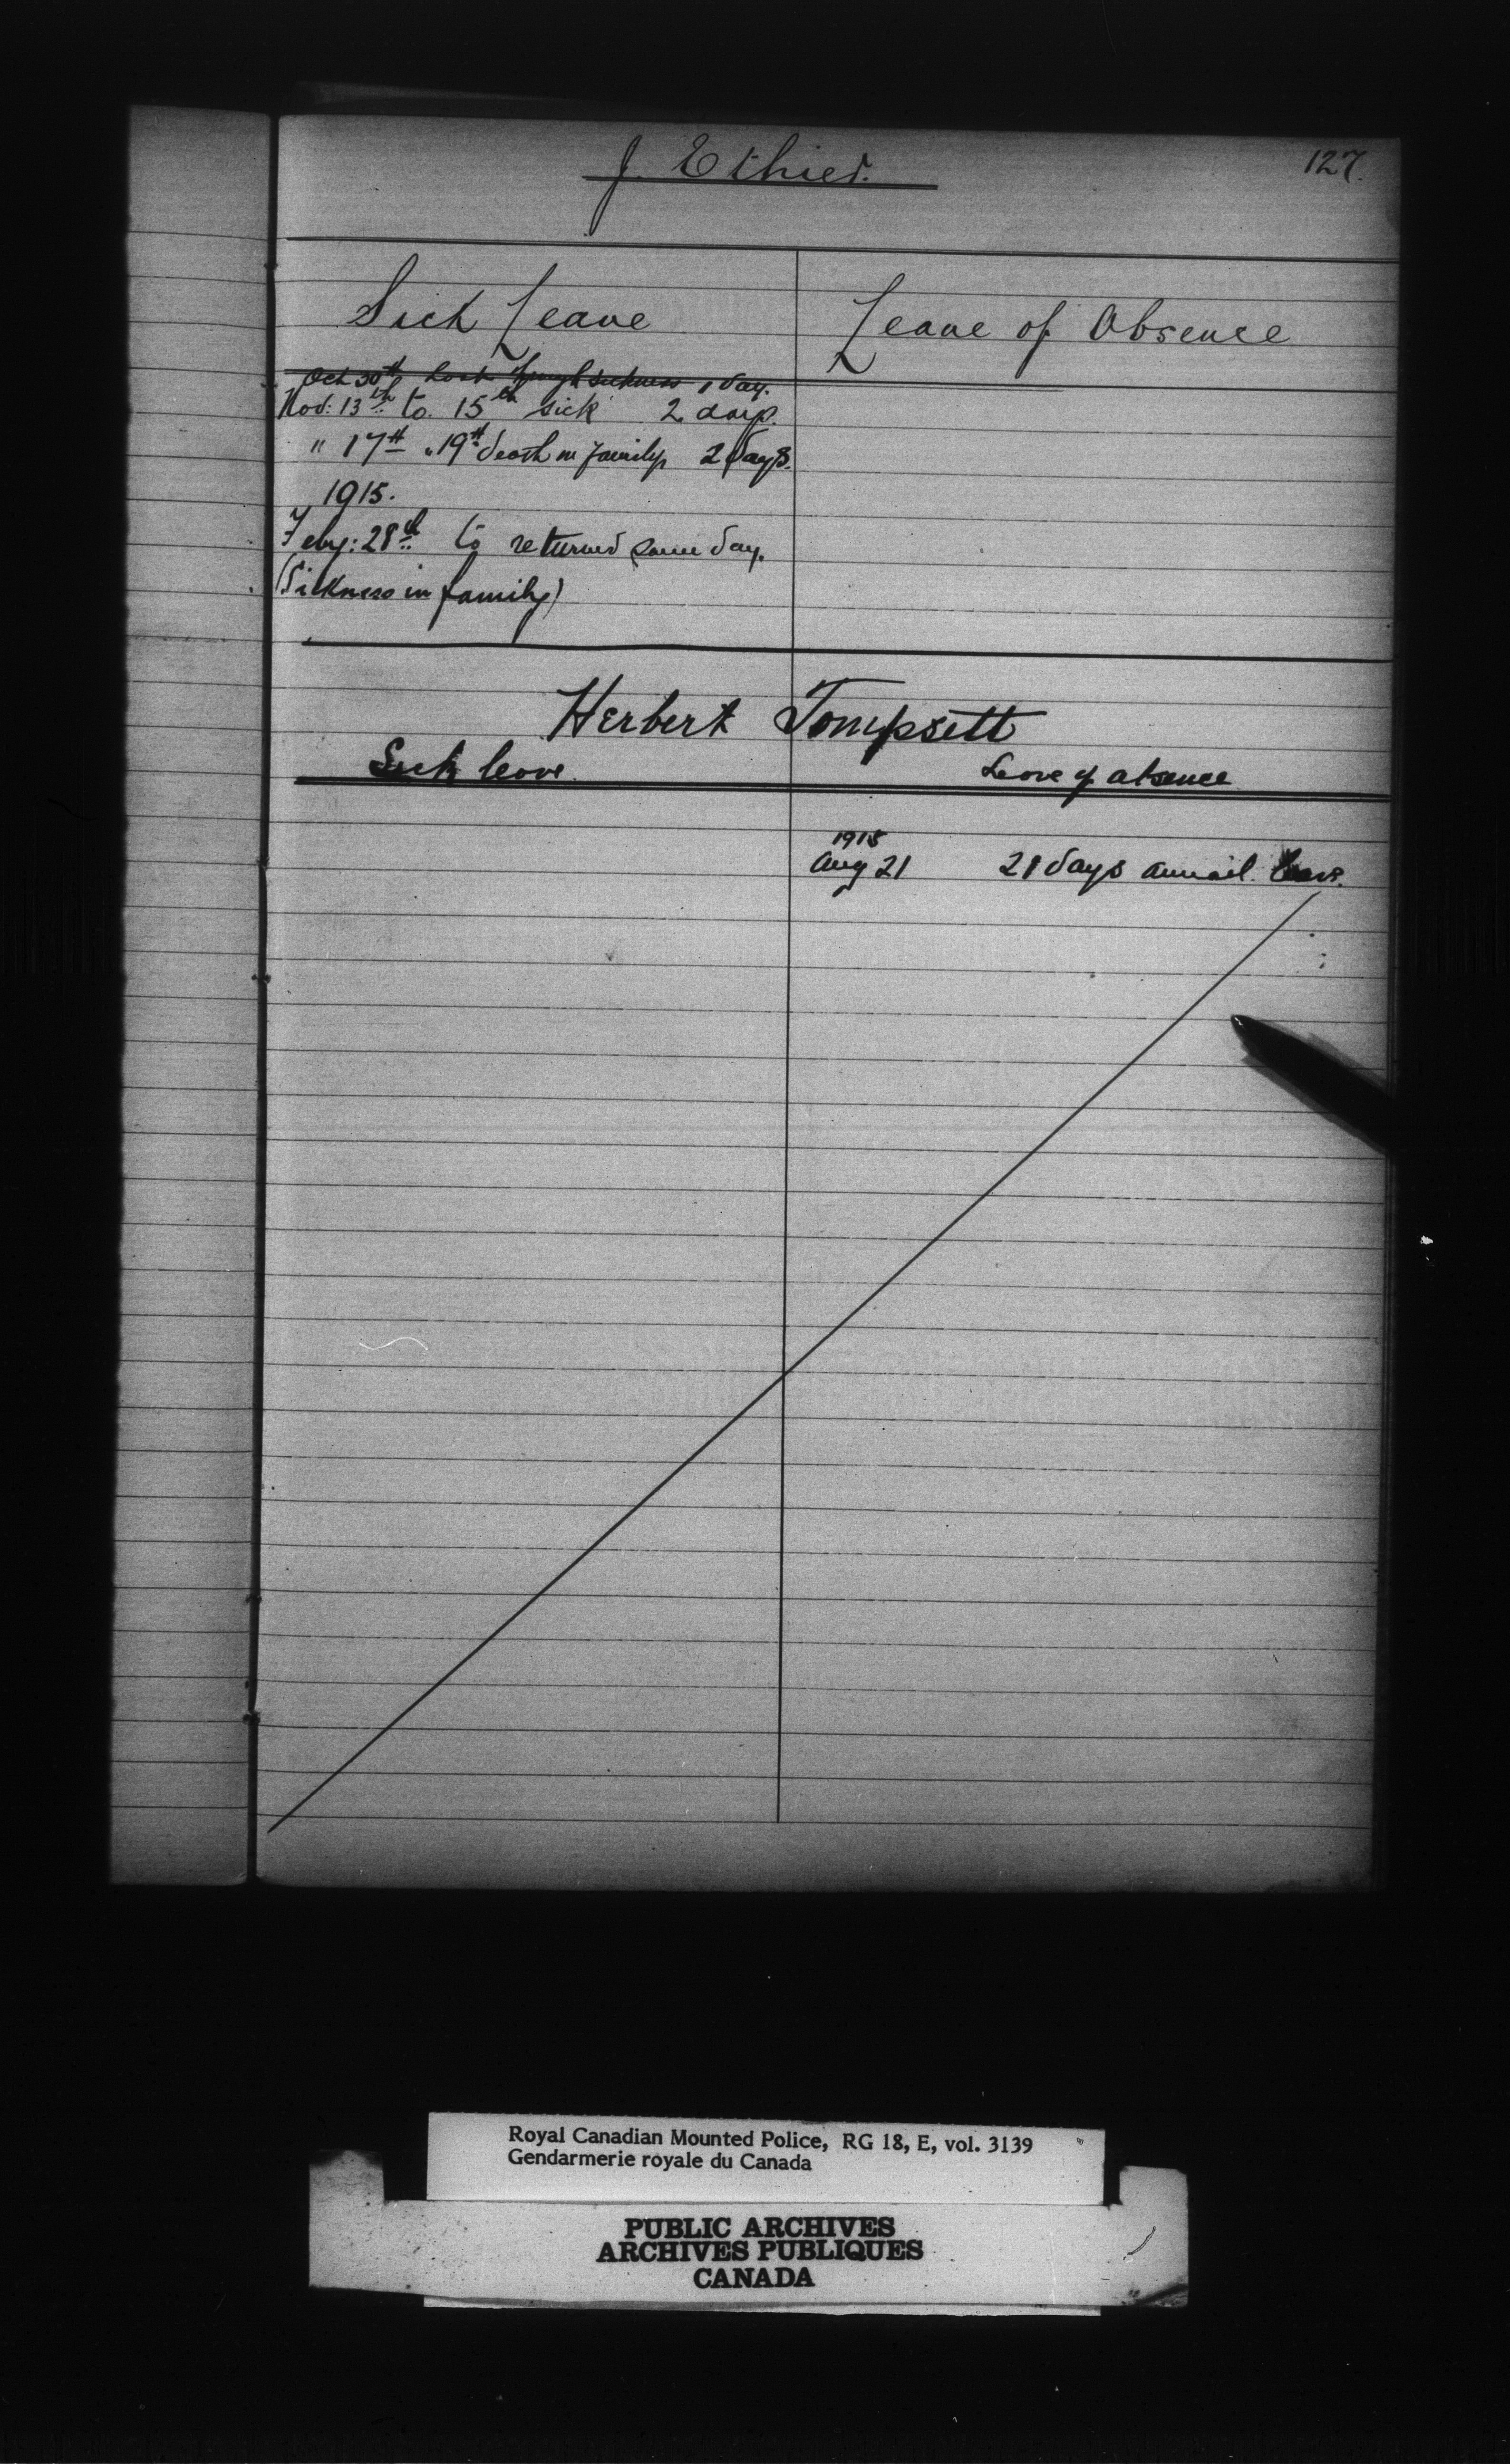 127.
J. Ethier.
Sick Leave
Leave of Absence
Oct 30th lost through sickness 1 day.
Nov: 13th to 15th sick 2 days.
" 17th " 19th death in family 2 days.
1915.
Feby: 28th to returned same day.
(Sickness in family)
Herbert Tompsett
Sick leave
Leave of absence
1915
Aug 21 21 days annual leave.
Royal Canadian Mounted Police, RG 18, E, vol. 3139
Gendarmerie royale du Canada
PUBLIC ARCHIVES
ARCHIVES PUBLIQUES
CANADA